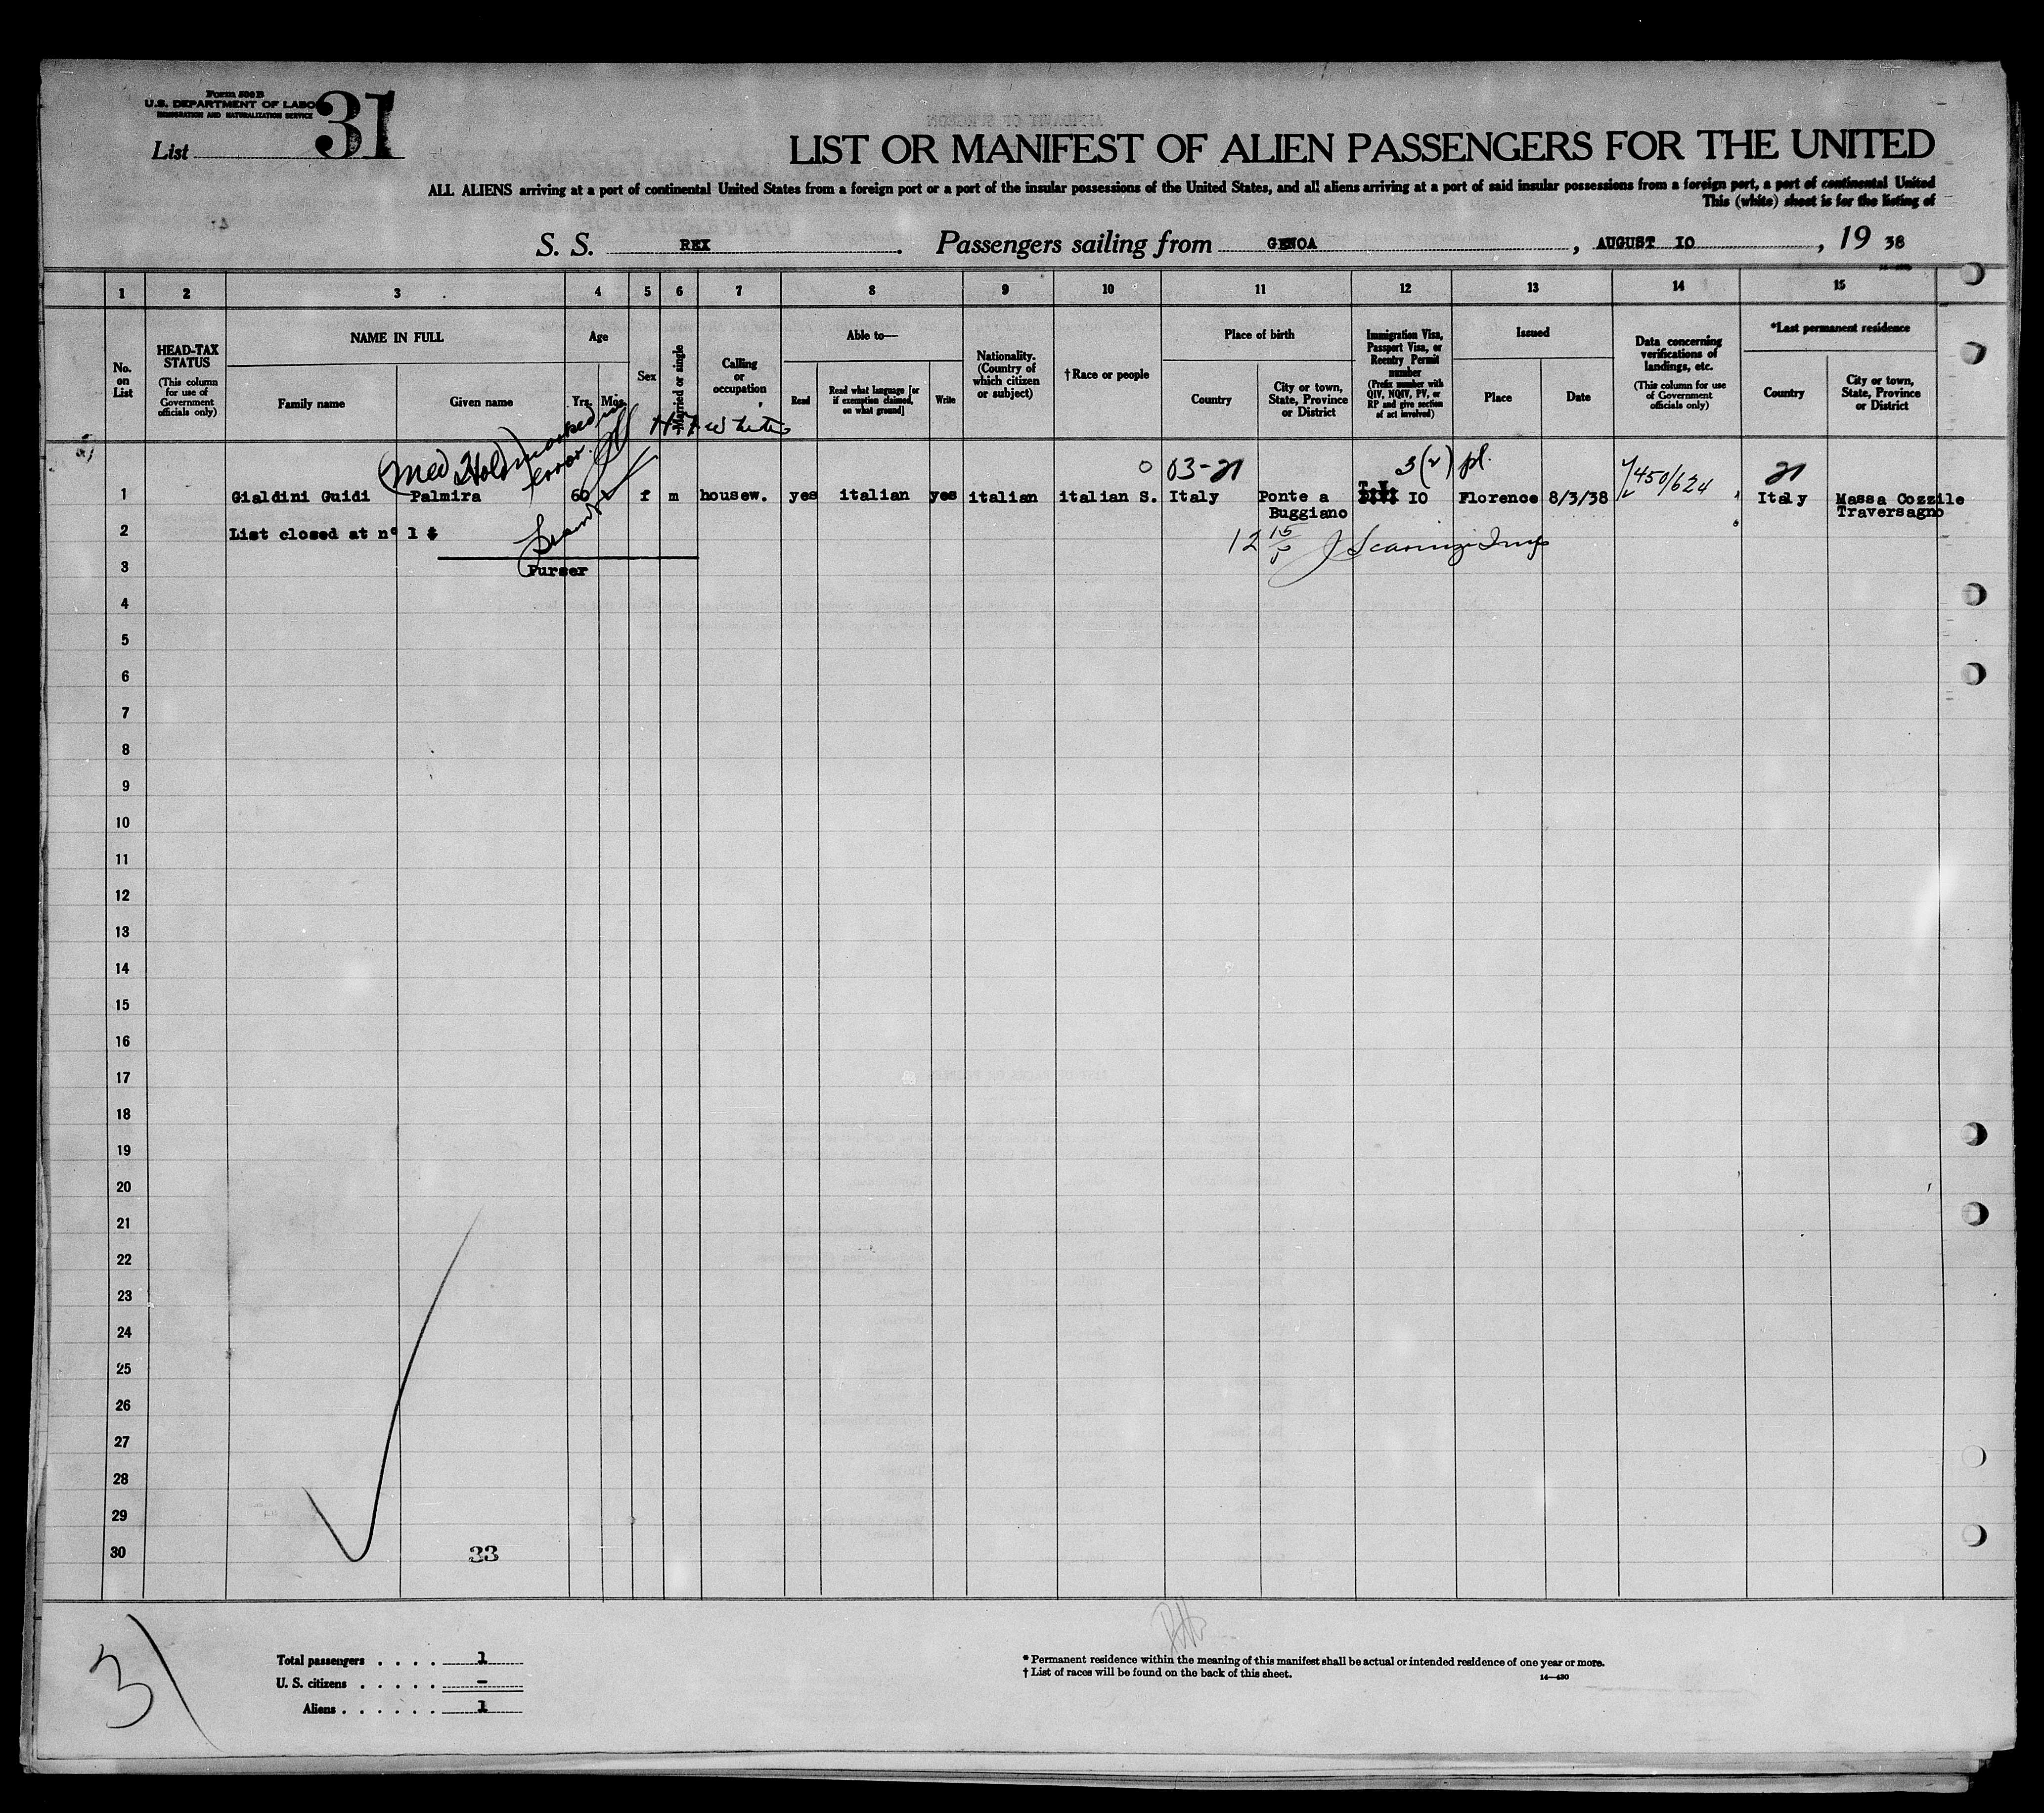 Form 500 B
U.S. DEPARTMENT OF LABO
IMMIGRATION AND NATURALIZATION SERVICE
List 31
LIST OR MANIFEST OF ALIEN PASSENGERS FOR THE UNITED
ALL ALIENS arriving at a port of continental United States from a foreign port or a port of the insular possessions of the United States, and all aliens arriving at a port of said insular possessions from a foreign port, a port of continental United
This (white) sheet is for the listing of
S. S. REX. Passengers sailing from GENOA, AUGUST 10, 19 38
1 2 3 4 5 6 7 8 9 10 11 12 13 14 15
No. on List
HEAD-TAX STATUS
(This column for use of Government officials only)
NAME IN FULL
Family name
Given name
Age
Yrs. Mos.
Sex
Married or single
Calling or occupation
Able to—
Read
Read what language [or if exemption claimed, on what ground]
Write
Nationality. (Country of which citizen or subject)
†Race or people
Place of birth
Country
City or town, State, Province or District
Immigration Visa, Passport Visa, or Reentry Permit number
(Prefix number with QIV, NQIV, PV, or RP and give section of act involved)
Issued
Place
Date
Data concerning verifications of landings, etc.
(This column for use of Government officials only)
*Last permanent residence
Country
City or town, State, Province or District
(Med Hold) marked in error
White
03-21
3(2) pl.
450/624
21
1 Gialdini Guidi Palmira 60 f m housew. yes italian yes italian italian S. Italy Ponte a Buggiano 10 Florence 8/3/38 Italy Massa Cozzile Traversagno
2 List closed at n° 1
12
3 Purser
4
5
6
7
8
9
10
11
12
13
14
15
16
17
18
19
20
21
22
23
24
25
26
27
28
29
30
33
31
Total passengers . . . . 1
U. S. citizens . . . . . –
Aliens . . . . . . 1
* Permanent residence within the meaning of this manifest shall be actual or intended residence of one year or more.
† List of races will be found on the back of this sheet.
14—430